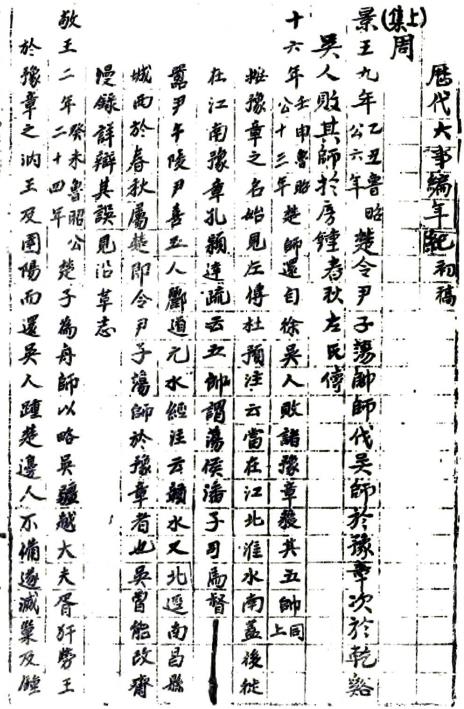 歷代大事編年紀初稿
(上集)周
景王九年乙丑魯昭公六年楚令尹子蕩帥師伐吳師於豫章次於乾谿
吳人敗其師於房鍾春秋左氏傳
十六年壬申魯昭公十三年楚師還自徐吳人敗諸豫章獲其五帥同上
按豫章之名始見左傳杜預注云當在江北淮水南蓋後徙
在江南豫章孔穎達疏云五帥謂蕩侯潘子司馬督
囂尹午陵尹喜五人酈道元水經注云贛水又北逕南昌縣
城西於春秋屬楚即令尹子蕩師於豫章者也吳曾能改齋
漫錄詳辯其誤見沿革志
敬王二年癸未魯昭公二十四年楚子為舟師以略吳疆越大夫胥犴勞王
於豫章之汭王及圉陽而還吳人踵楚邊人不備遂滅巢及鍾